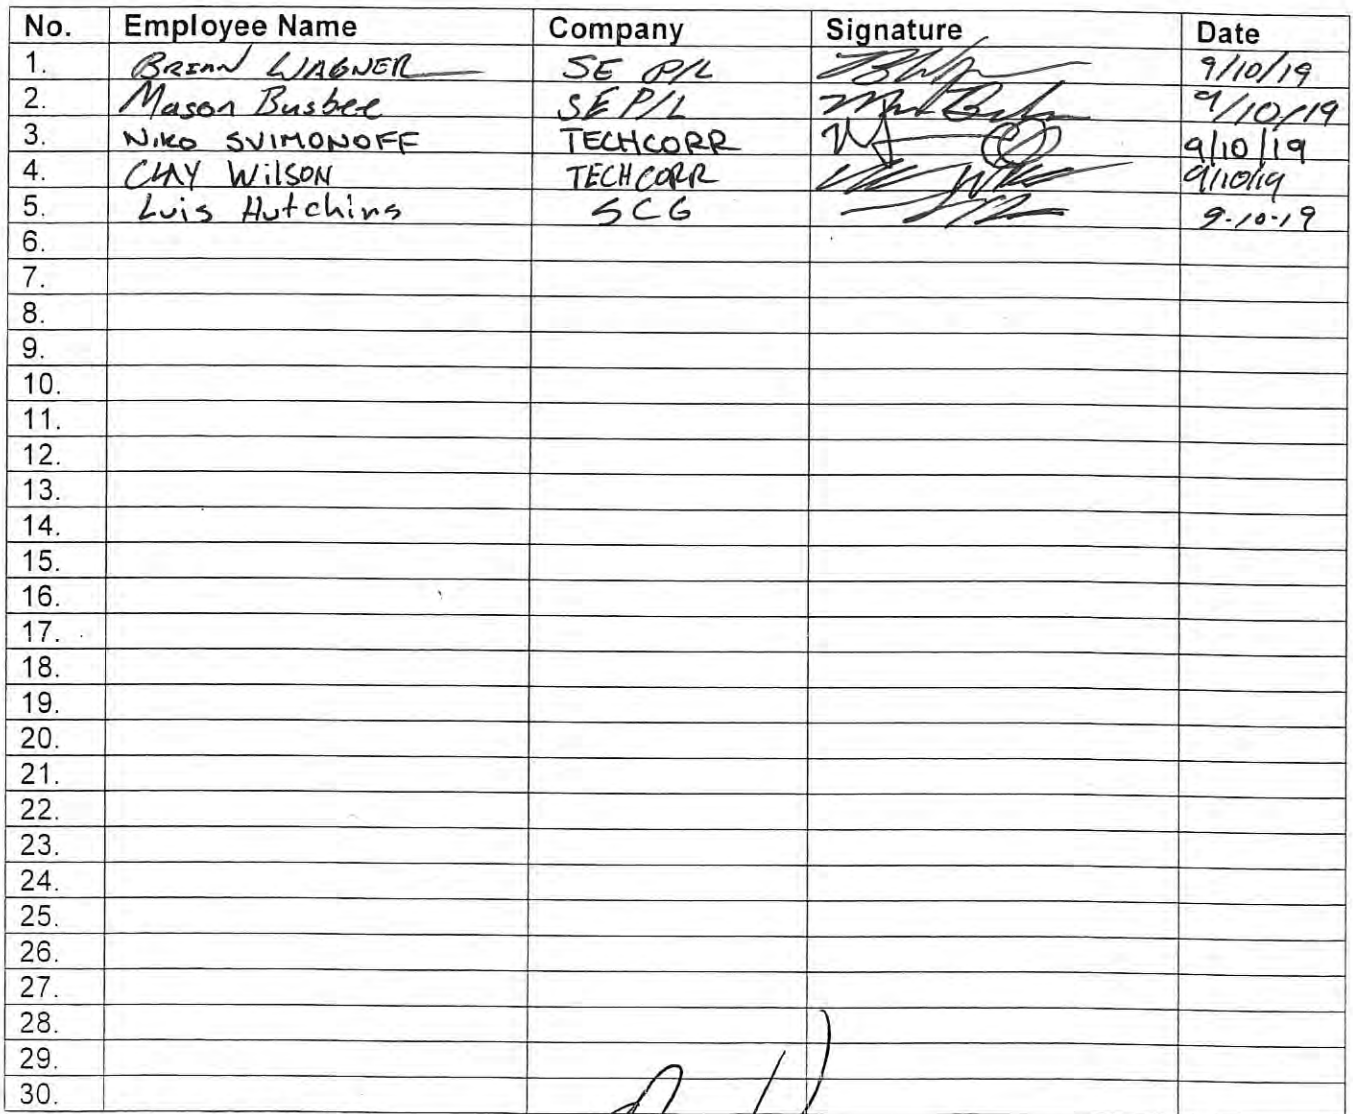 No. Employee Name Company Signature Date
1. BRIAN WAGNER SE P/L 9/10/19
2. Mason Busbee SE P/L 9/10/19
3. Niko SVIMONOFF TECHCORR 9/10/19
4. CLAY WilSON TECHCORR 9/10/19
5. Luis Hutchins SCG 9-10-19
6.
7.
8.
9.
10.
11.
12.
13.
14.
15.
16.
17.
18.
19.
20.
21.
22.
23.
24.
25.
26.
27.
28.
29.
30.